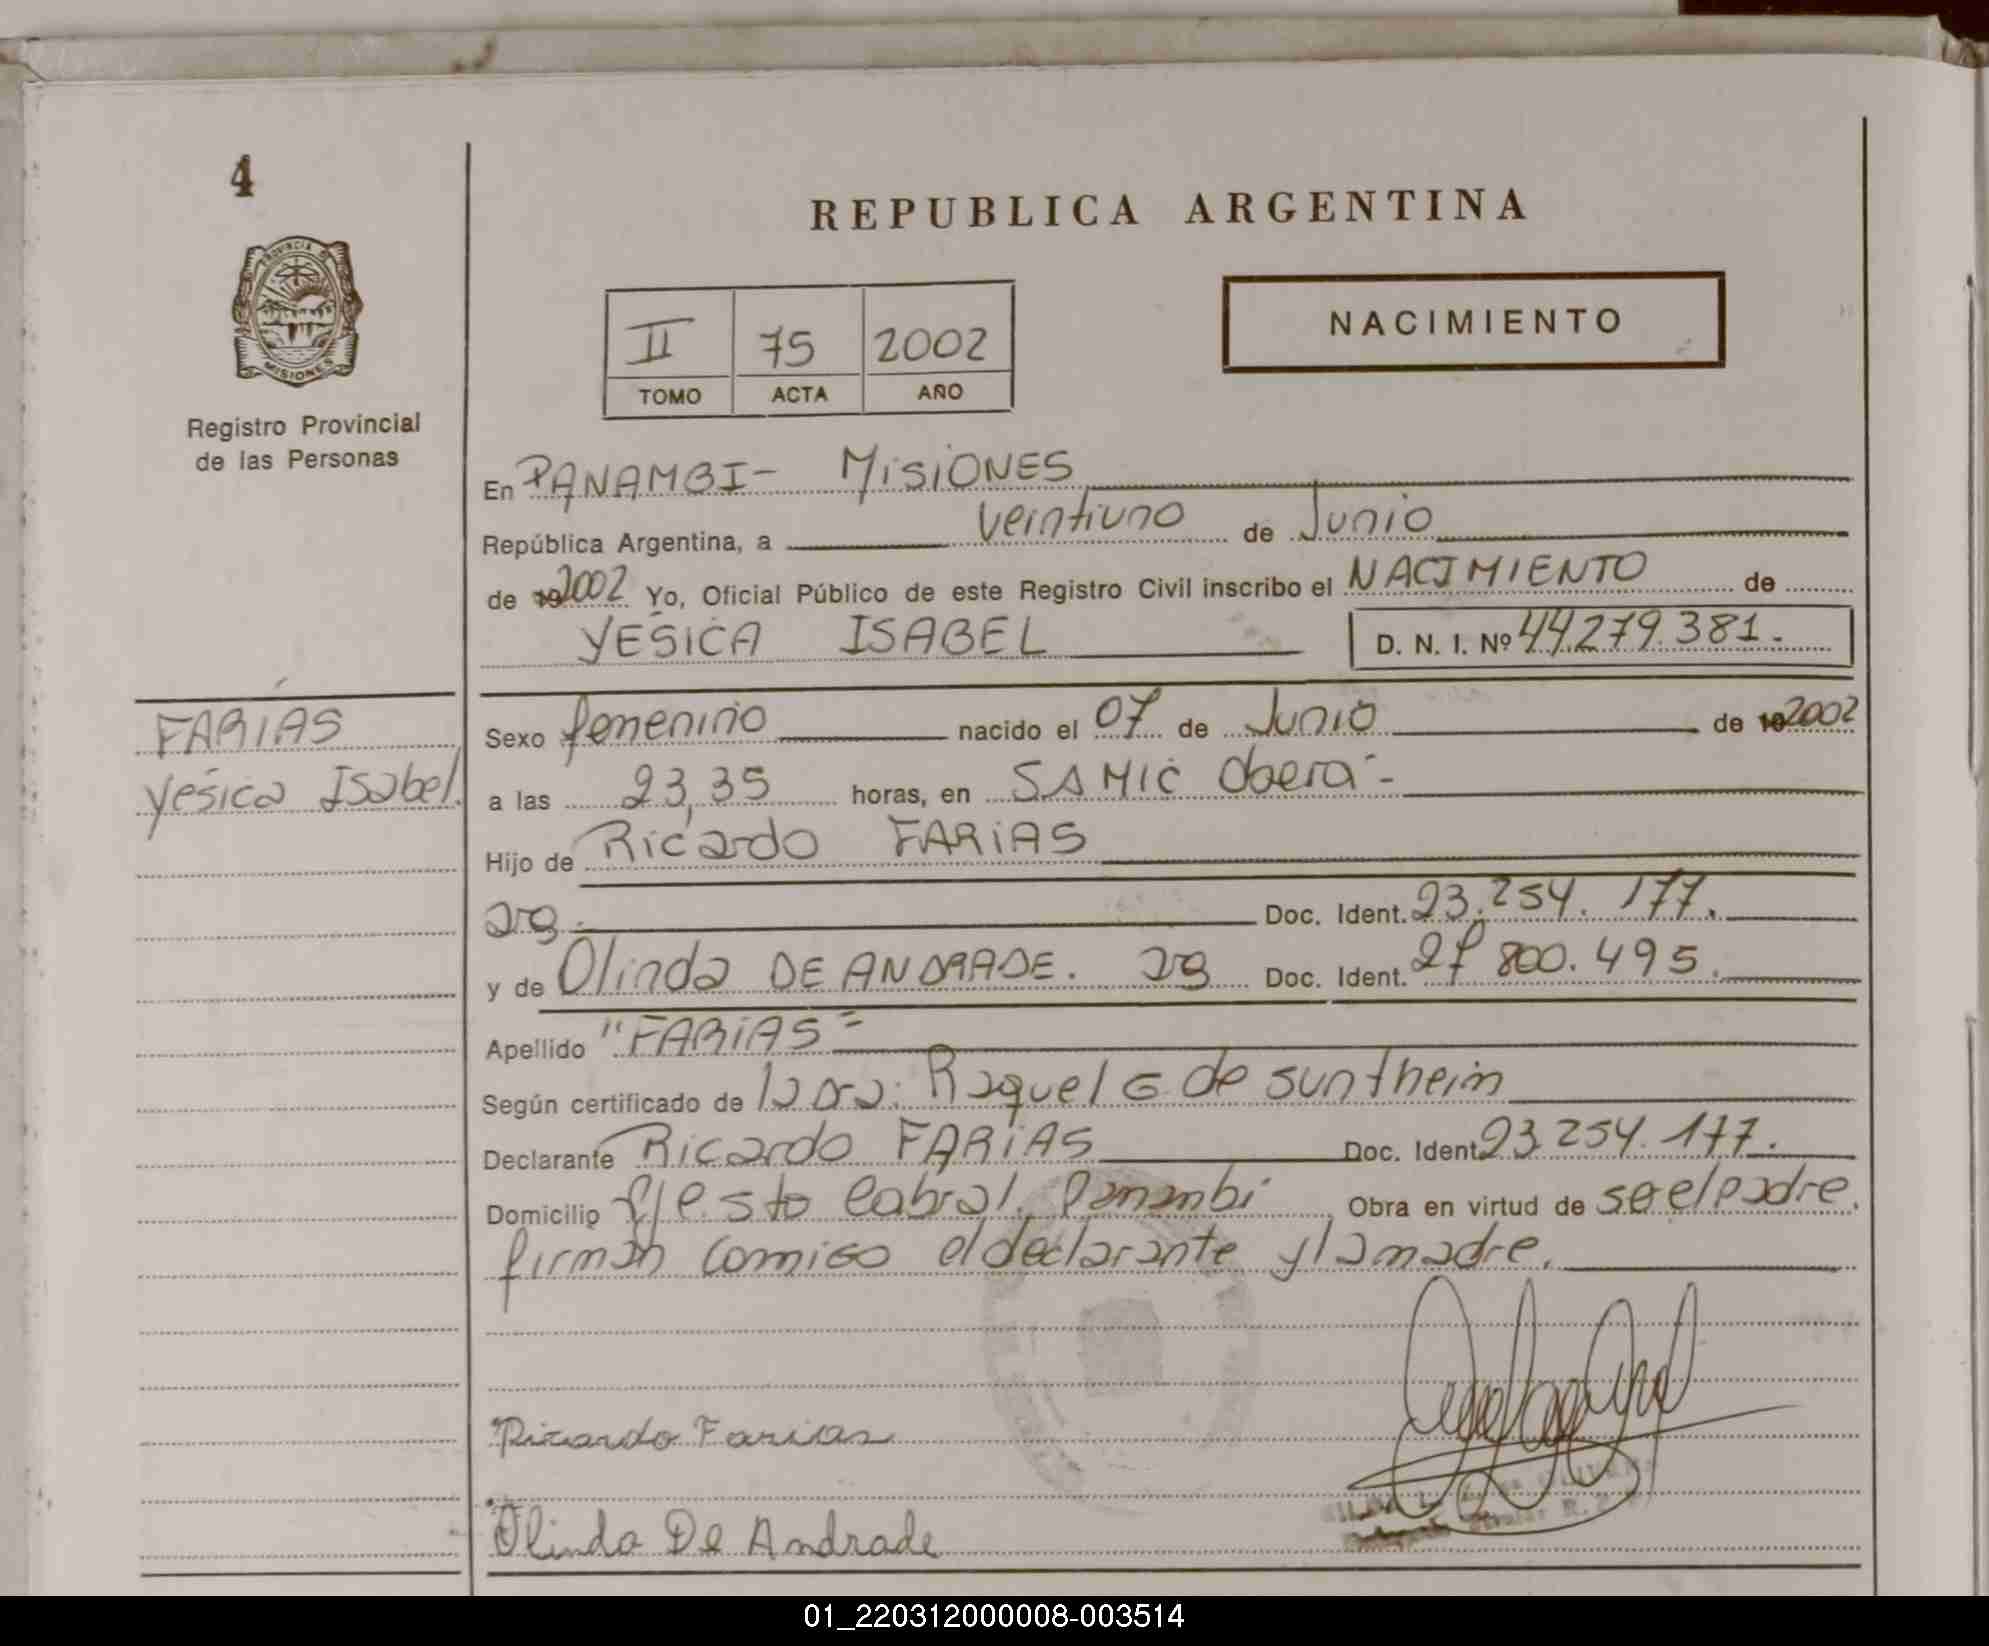 4
REPUBLICA ARGENTINA
PROVINCIA DE
MISIONES
II 75 2002
TOMO ACTA AÑO
NACIMIENTO
Registro Provincial
de las Personas
En PANAMBI - MISIONES
República Argentina, a veintiuno de Junio
de 192002 Yo, Oficial Público de este Registro Civil inscribo el NACIMIENTO de
YESICA ISABEL D. N. I. Nº 44.279.381.
FARIAS
Yesica Isabel.
Sexo femenino nacido el 07 de Junio de 192002
a las 23,35 horas, en SAMIC Oberá -
Hijo de Ricardo FARIAS
arg. Doc. Ident. 23.254.177.
y de Olinda DE ANDRADE. arg Doc. Ident. 27 800.495.
Apellido "FARIAS"
Según certificado de la Dra: Raquel G de suntheim
Declarante Ricardo FARIAS Doc. Ident 23.254.177.
Domicilio Cabral. Panambi Obra en virtud de se el padre.
firman comigo el declarante y la madre.
Ricardo Farias
Olinda De Andrade
01_220312000008-003514